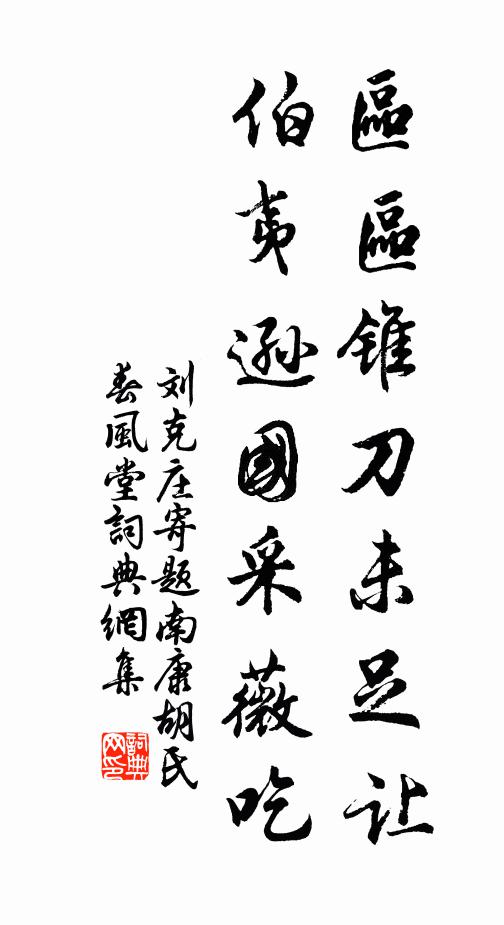 區區錐刀未足让
伯夷遜國采薇吃
刘克庄寄题南康胡氏
春風堂詞典網集
詞典网印